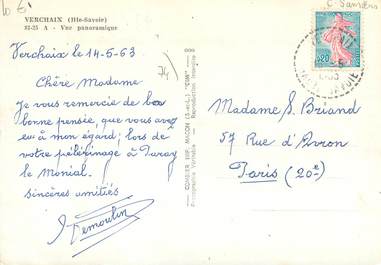 10 €
C Samoëns
VERCHAIX (Hte-Savoie)
21-25 A - Vue panoramique
Verchaix le 14-5-63
74
Chère Madame
Je vous remercie de la
bonne pensée, que vous avez
eu à mon égard; lors de
votre pélérinage à Paray
le Monial.
sincères amitiés
COMBIER IMP. MACON (S.-et-L.) "CIM"
Reproduction Interdite
0,20
HAUTE SAVOIE
Madame S. Briand
57 Rue d'Avron
Paris (20e)